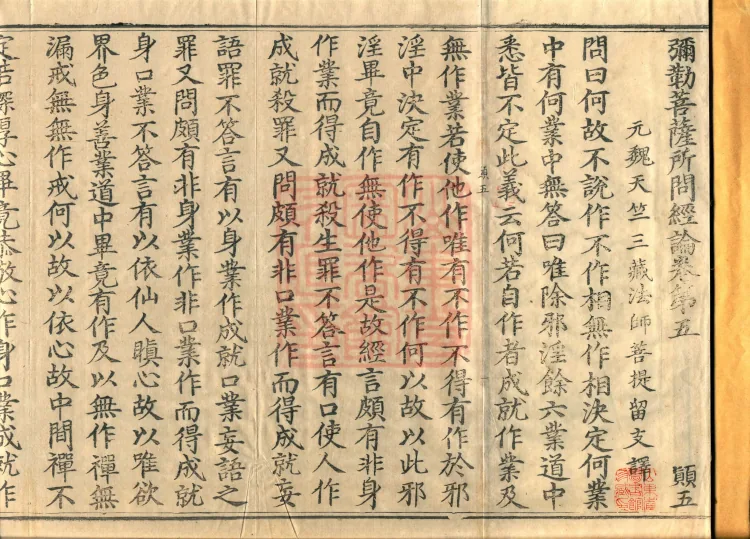 彌勒菩薩所問經論卷第五 顛五
元魏天竺三藏法師菩提留支譯
問曰何故不說作不作相無作相決定何業
中有何業中無答曰唯除邪淫餘六業道中
悉皆不定此義云何若自作者成就作業及
無作業若使他作唯有不作不得有作於邪
淫中決定有作不得有不作何以故以此邪
淫畢竟自作無使他作是故經言頗有非身
作業而得成就殺生罪不答言有口使人作
成就殺罪又問頗有非口業作而得成就妄
語罪不答言有以身業作成就口業妄語之
罪又問頗有非身業作非口業作而得成就
身口業不答言有以依仙人瞋心故以唯欲
界色身善業道中畢竟有作及以無作禪無
漏戒無無作戒何以故以依心故中間禪不
定若深厚心畢竟恭敬心作身口業成就作